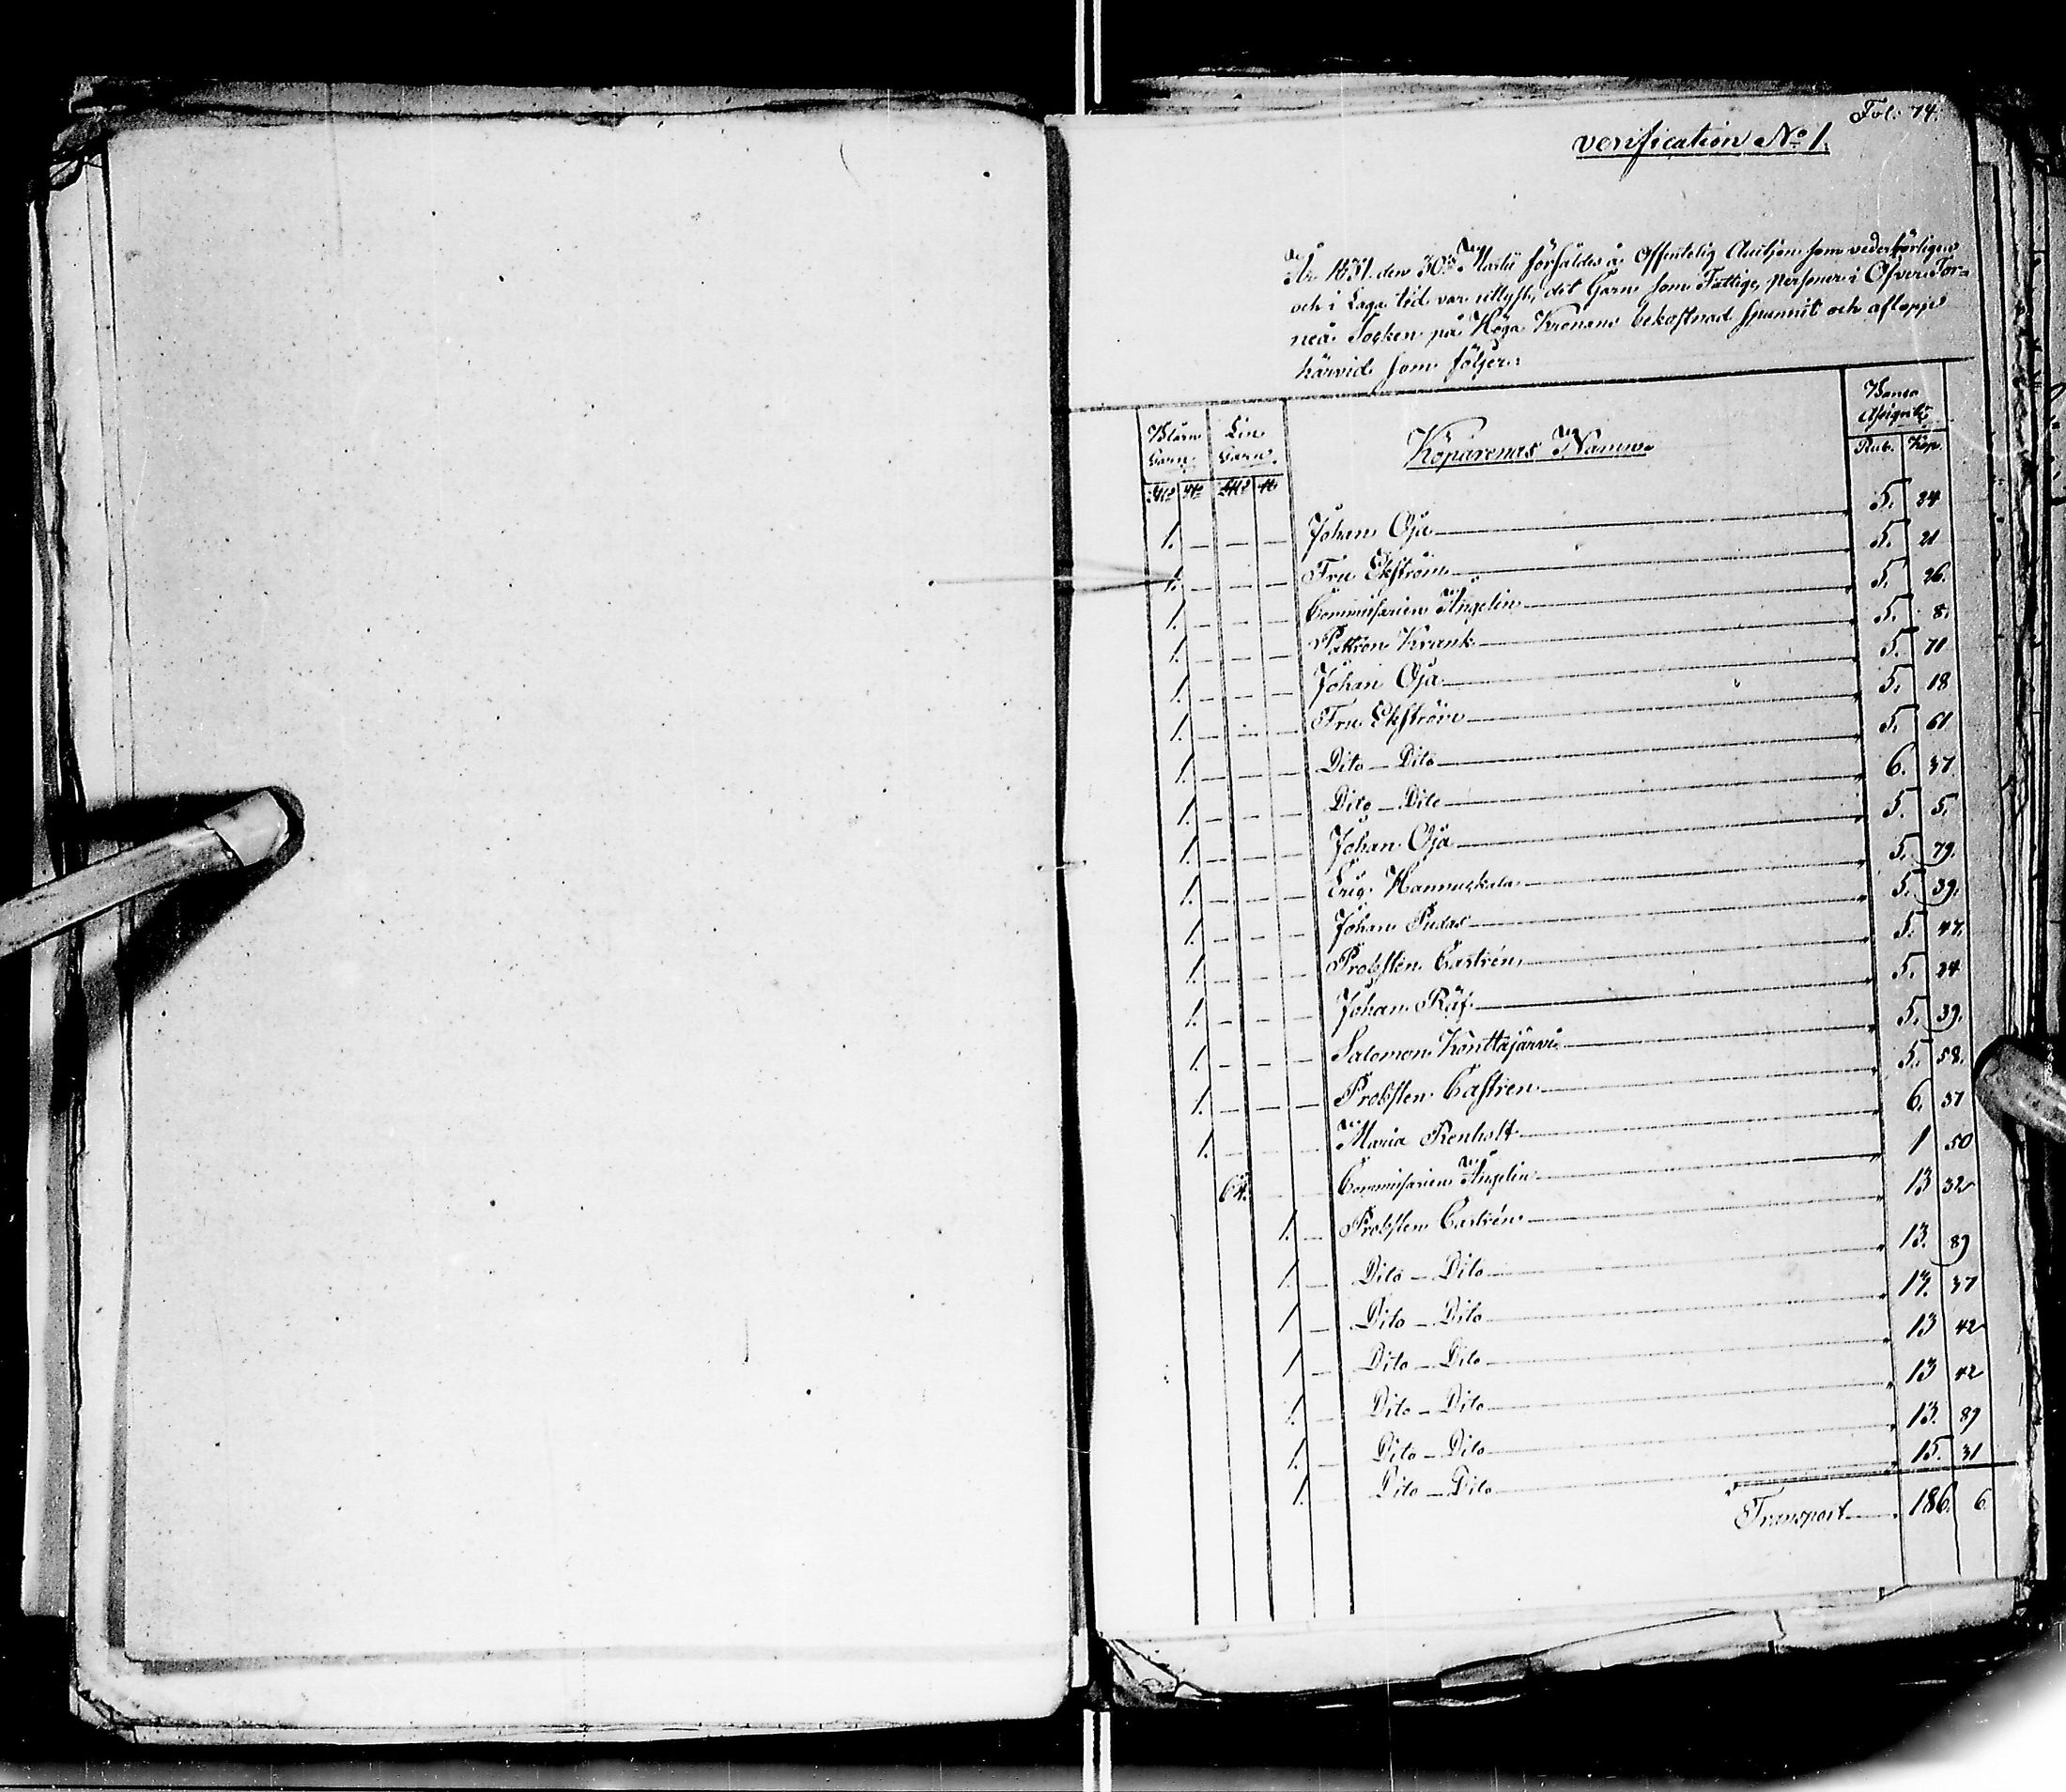 Fol: 74.
verification No 1.
År 1831 den 30de Martii försåldes å Offentelig Auction som vederbörligen
och i Laga tid var utlyst, det Garn som Fattige personer i Öfver Tor=
neå Socken på Höga Kronans bekostnad spunnit och aflopp
härvid som följer:
Blårn Garn. Lin Garn. Köparenas Namn. Banco Assignat:
Rub. Kop.
1. — — — Johan Oja 5. 24
1. — — — Fru Ekström 5. 21
1. — — — Commissarien Ångelin 5. 26.
1. — — — Patron Krank 5. 8.
1. — — — Johan Oja 5. 70
1. — — — Fru Ekström 5. 18
1. — — — Dito — Dito 5. 61
1. — — — Dito — Dito 6. 37
1. — — — Johan Oja 5. 5.
1. — — — Eriq Hannukala 5. 79.
1. — — — Johan Pudas 5. 39.
1. — — — Probsten Castrén 5. 47.
1. — — — Johan Räf 5. 24
1. — — — Salomon Konttajärvi 5. 39.
1. — — — Probsten Castren 5. 58.
1. Maria Renholt 6. 37
64. Commissarien Ångelin 1 50
1. — Probsten Castrén 13 32
1. — Dito — Dito 13. 89
1 — Dito — Dito 13. 37
1 — Dito — Dito 13 42
1. — Dito — Dito 13 42
1. — Dito — Dito 13. 89
1. — Dito — Dito 15. 31
Transport 186. 6.